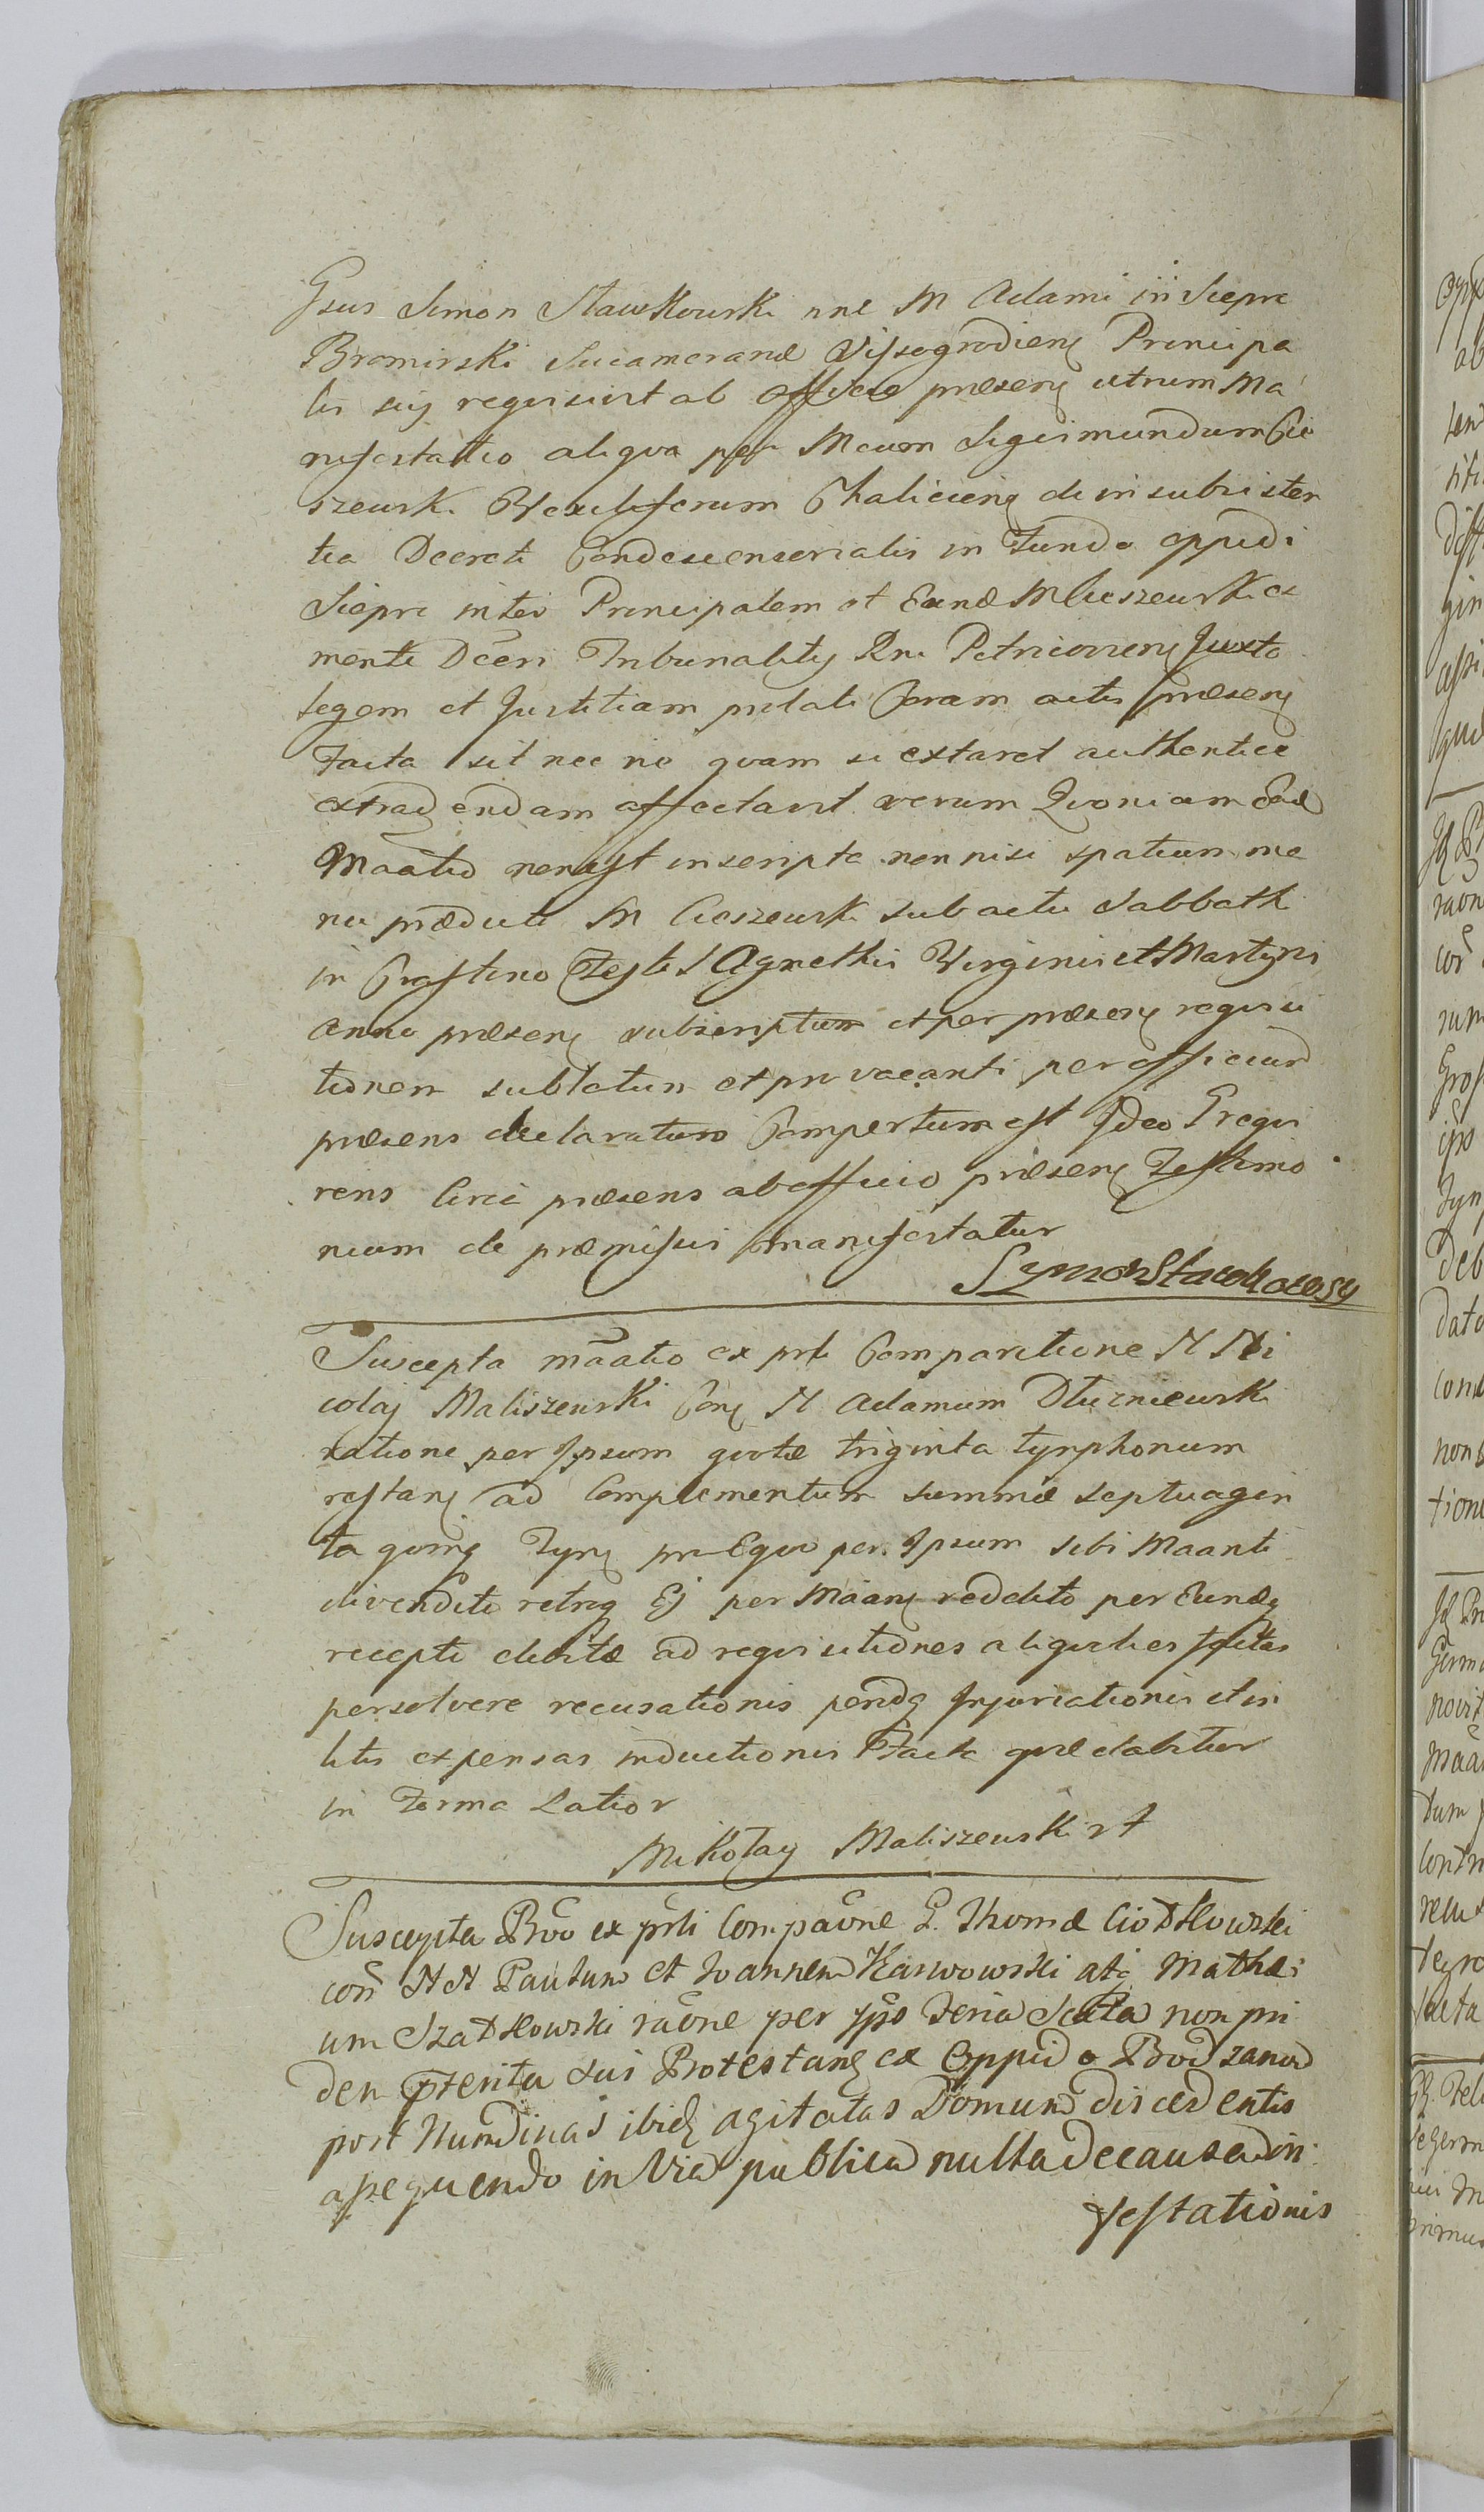 Gsus Simon Stawkowski nne M Adami in Siepre
Bromirski Sucamerarii Vissogrodiens Principa
lis sui requisivit ab officio præsens utrum Ma
nifestatio aliqva per Mcum Sigismundum Cie
szewski Vexiliferum Chaliciens de in subsisten
tia Decreti Condescensorialis in Fundo oppidi
Siepre inter Principalem et Eund M Cieszewski ex
mente Dcēri Tribunalitii Rni Petricoviens Juxta
legem et Justitiam prolati Coram actis præsens
Facta sit nec ne qvam si extaret authentice
extradendam affectavit verum Qvoniam Ead
Maātio non est inscripta non nisi spatium ma
nu prædicti M Cieszewski sub actu Sabbathi
in Crastino Festi S Agnethis Virginis et Martyris
Anno præsens subscriptum et per præsens requisi
tionem sublatum et pro vacanti per officium
præsens declaratum Compertum est Ideo G requi
rens Circa præsens ab officio præsens Testimo
nium de præmissis manifestatur
Szymon Stawkowsky
Suscepta maātio ex prti Comparitione N Ni
colai Maliszewski Cons N Adamum Dłuzniewski
ratione per Ipsum qvotæ triginta tynphonum
restans ad Complementum summæ septuagin
ta qvinq Tyns pro Eqvo per Ipsum sibi Maanti
divendito retroq Ej per Māans reddito per Eundq
recepti debitæ ad requisitiones aliqvoties
persolvere recusationis pendq Injuriationis et in
litis expensas inductionis Facta quæ dabitur
in Forma Latior
Mikołay Maliszewski
Suscepta Prōo ex prti Compaōne G. Thomæ Ciotkowski
con NN Paulum et Joannem Karwowski atq Mathæ
um Szatkowski raōne per ypō Feria Sexta non pri
dem prterita sui Protestans ex Oppido Bodzanow
post Nundinas ibidq agitatas Domum discedentis
assequendo in Via publica nulla de causa in:
festationis